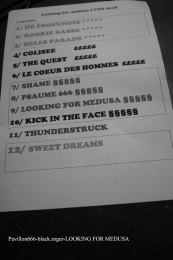 Looking for medusa LYON 2018
1/ DE PROFUNDIS *****
2/ ROOKIE BASSE *****
3/ HELLS PARADE *****
4/ COLISEE £££££
5/ THE QUEST £££££
6/ LE COEUR DES HOMMES £££££
7/ SHAME §§§§§
8/ PSAUME 666 §§§§§
9/ LOOKING FOR MEDUSA §§§§§
10/ KICK IN THE FACE §§§§§
11/ THUNDERSTRUCK
12/ SWEET DREAMS
Pavillon666-black.roger-LOOKING FOR MEDUSA